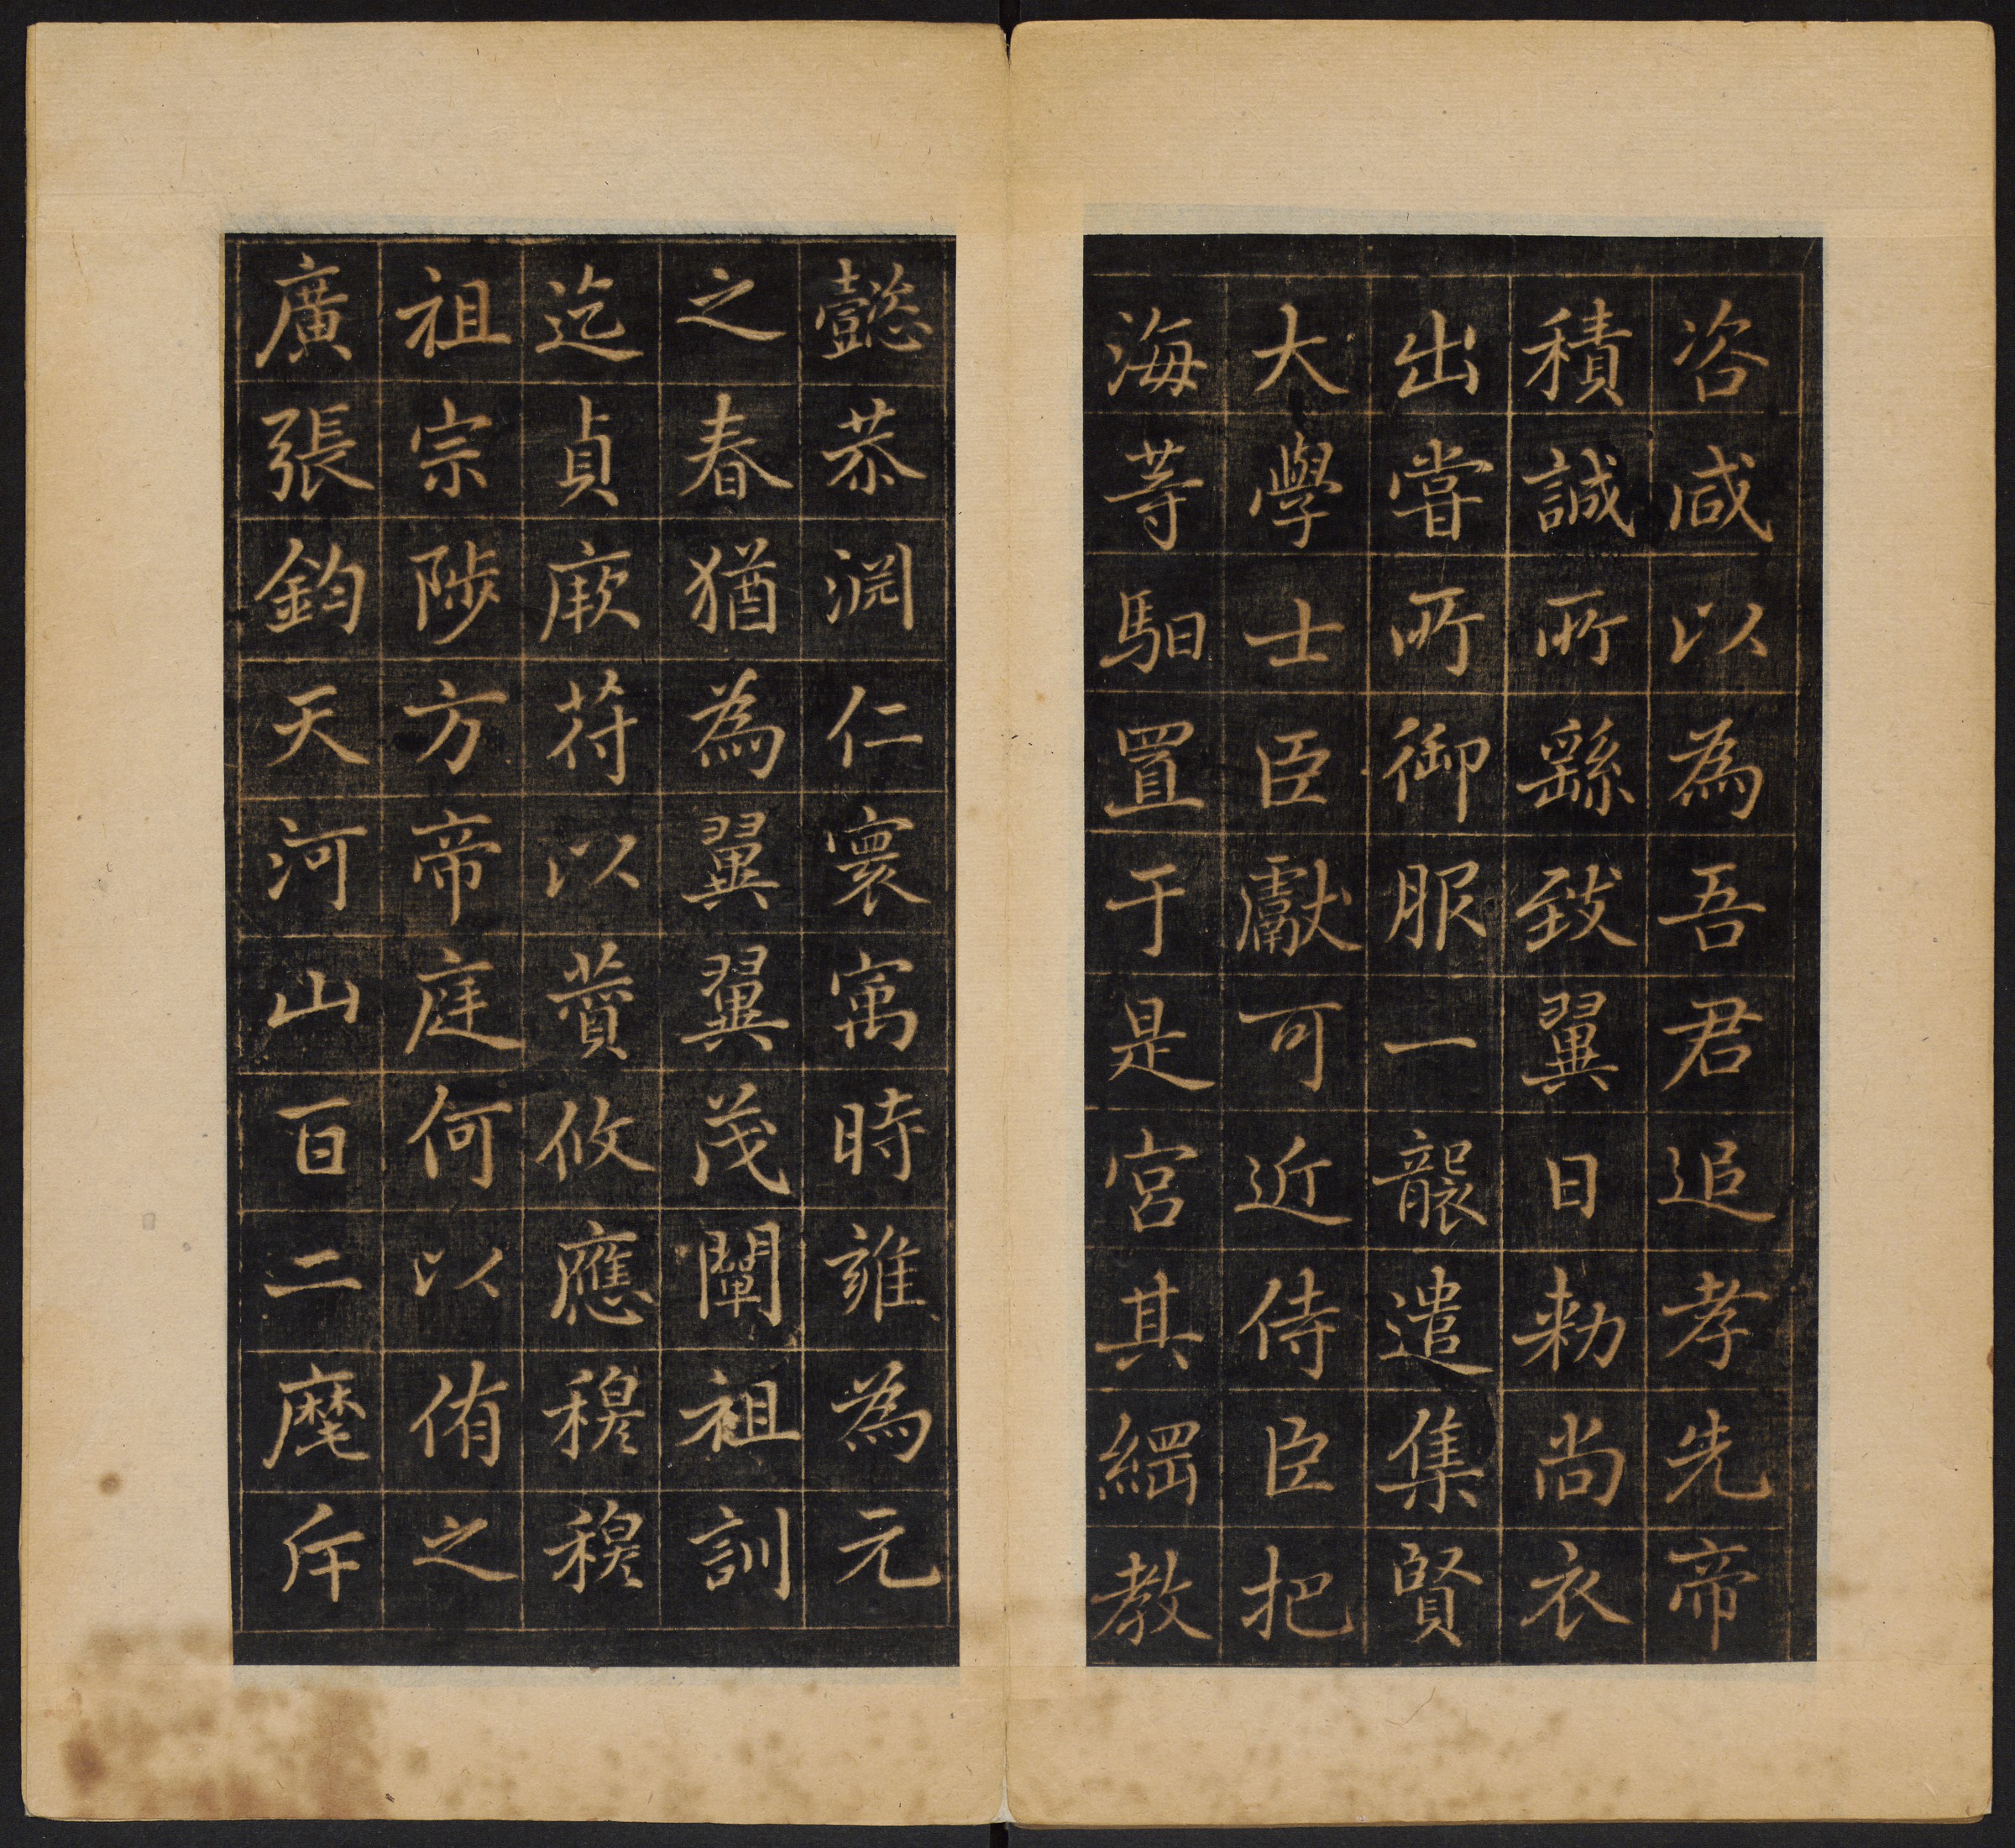 咨咸以為吾君追孝先帝
積誠所繇致翼日勑尚衣
出嘗所御服一襲遣集賢
大學士臣獻可近侍臣把
海等馹置于是宮其綱教
懿恭淵仁寰寓時雍為元
之春猶為翼翼茂闡祖訓
迄貞厥苻以薲攸應穆穆
祖宗陟方帝庭何以侑之
廣張鈞天河山百二麾斥